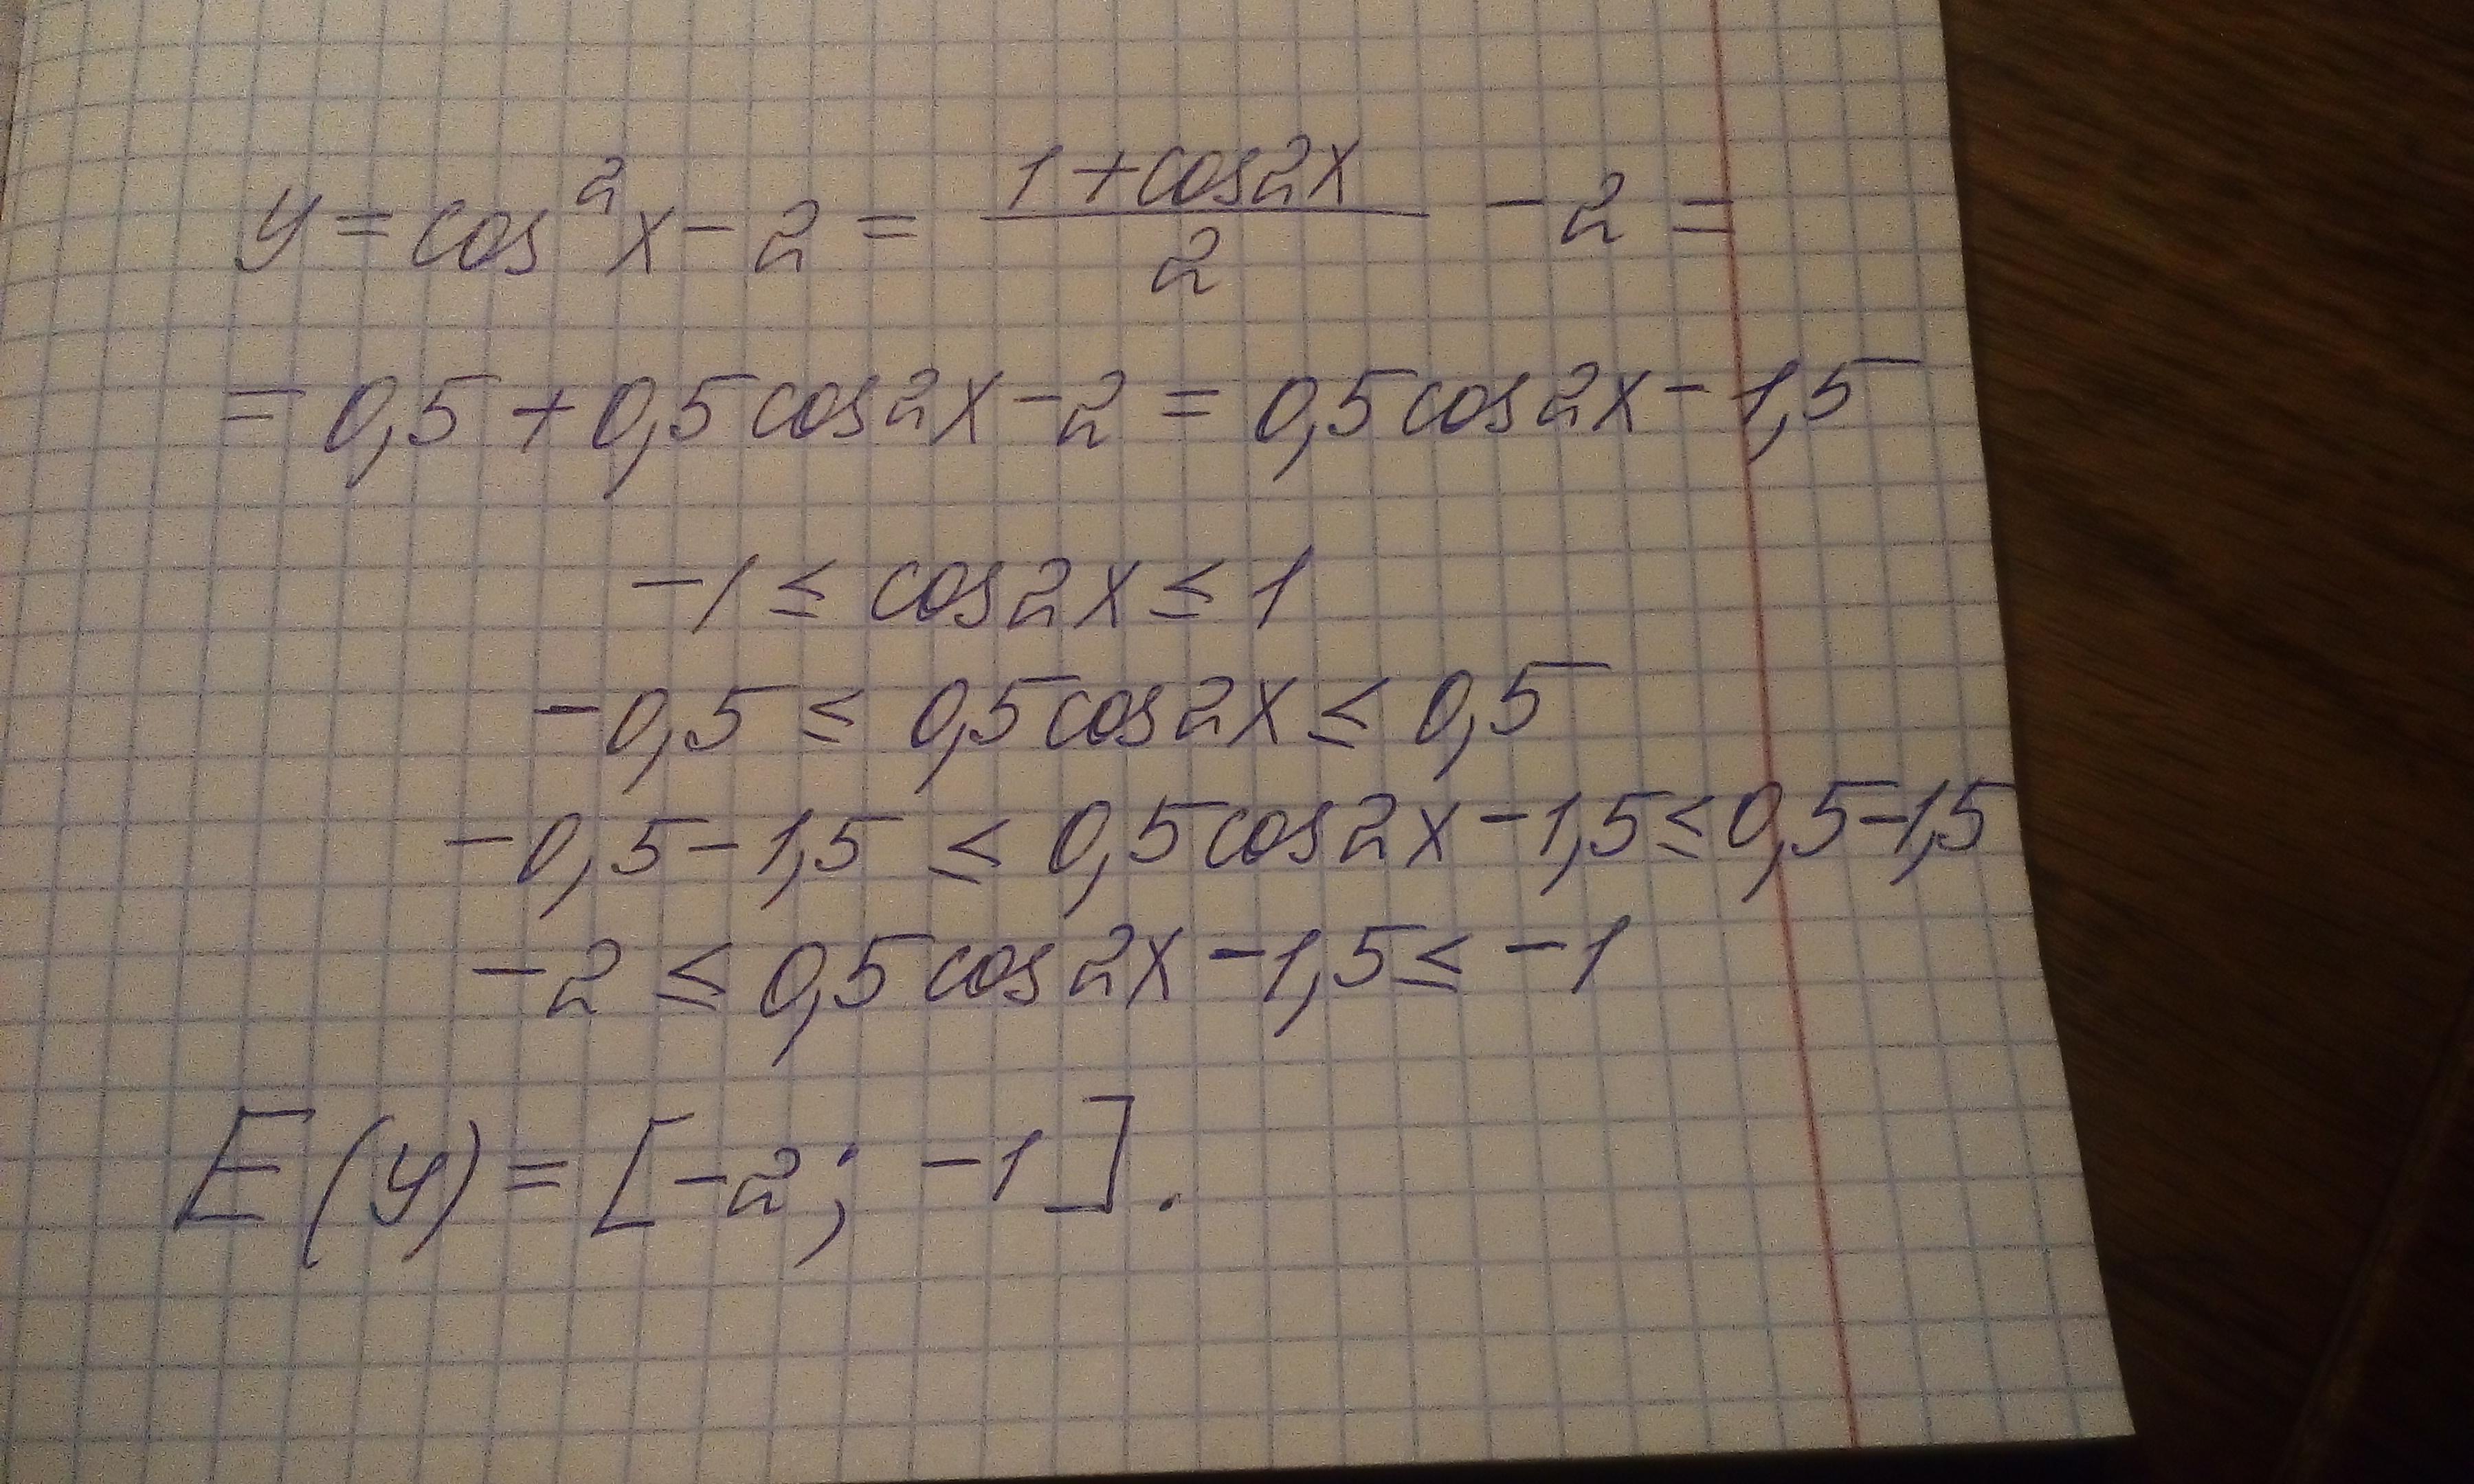 y = cos²x - 2 = (1 + cos2x)/2 - 2 =
= 0,5 + 0,5cos2x - 2 = 0,5cos2x - 1,5
-1 ≤ cos2x ≤ 1
-0,5 ≤ 0,5cos2x ≤ 0,5
-0,5 - 1,5 ≤ 0,5cos2x - 1,5 ≤ 0,5 - 1,5
-2 ≤ 0,5cos2x - 1,5 ≤ -1
E(y) = [-2; -1].